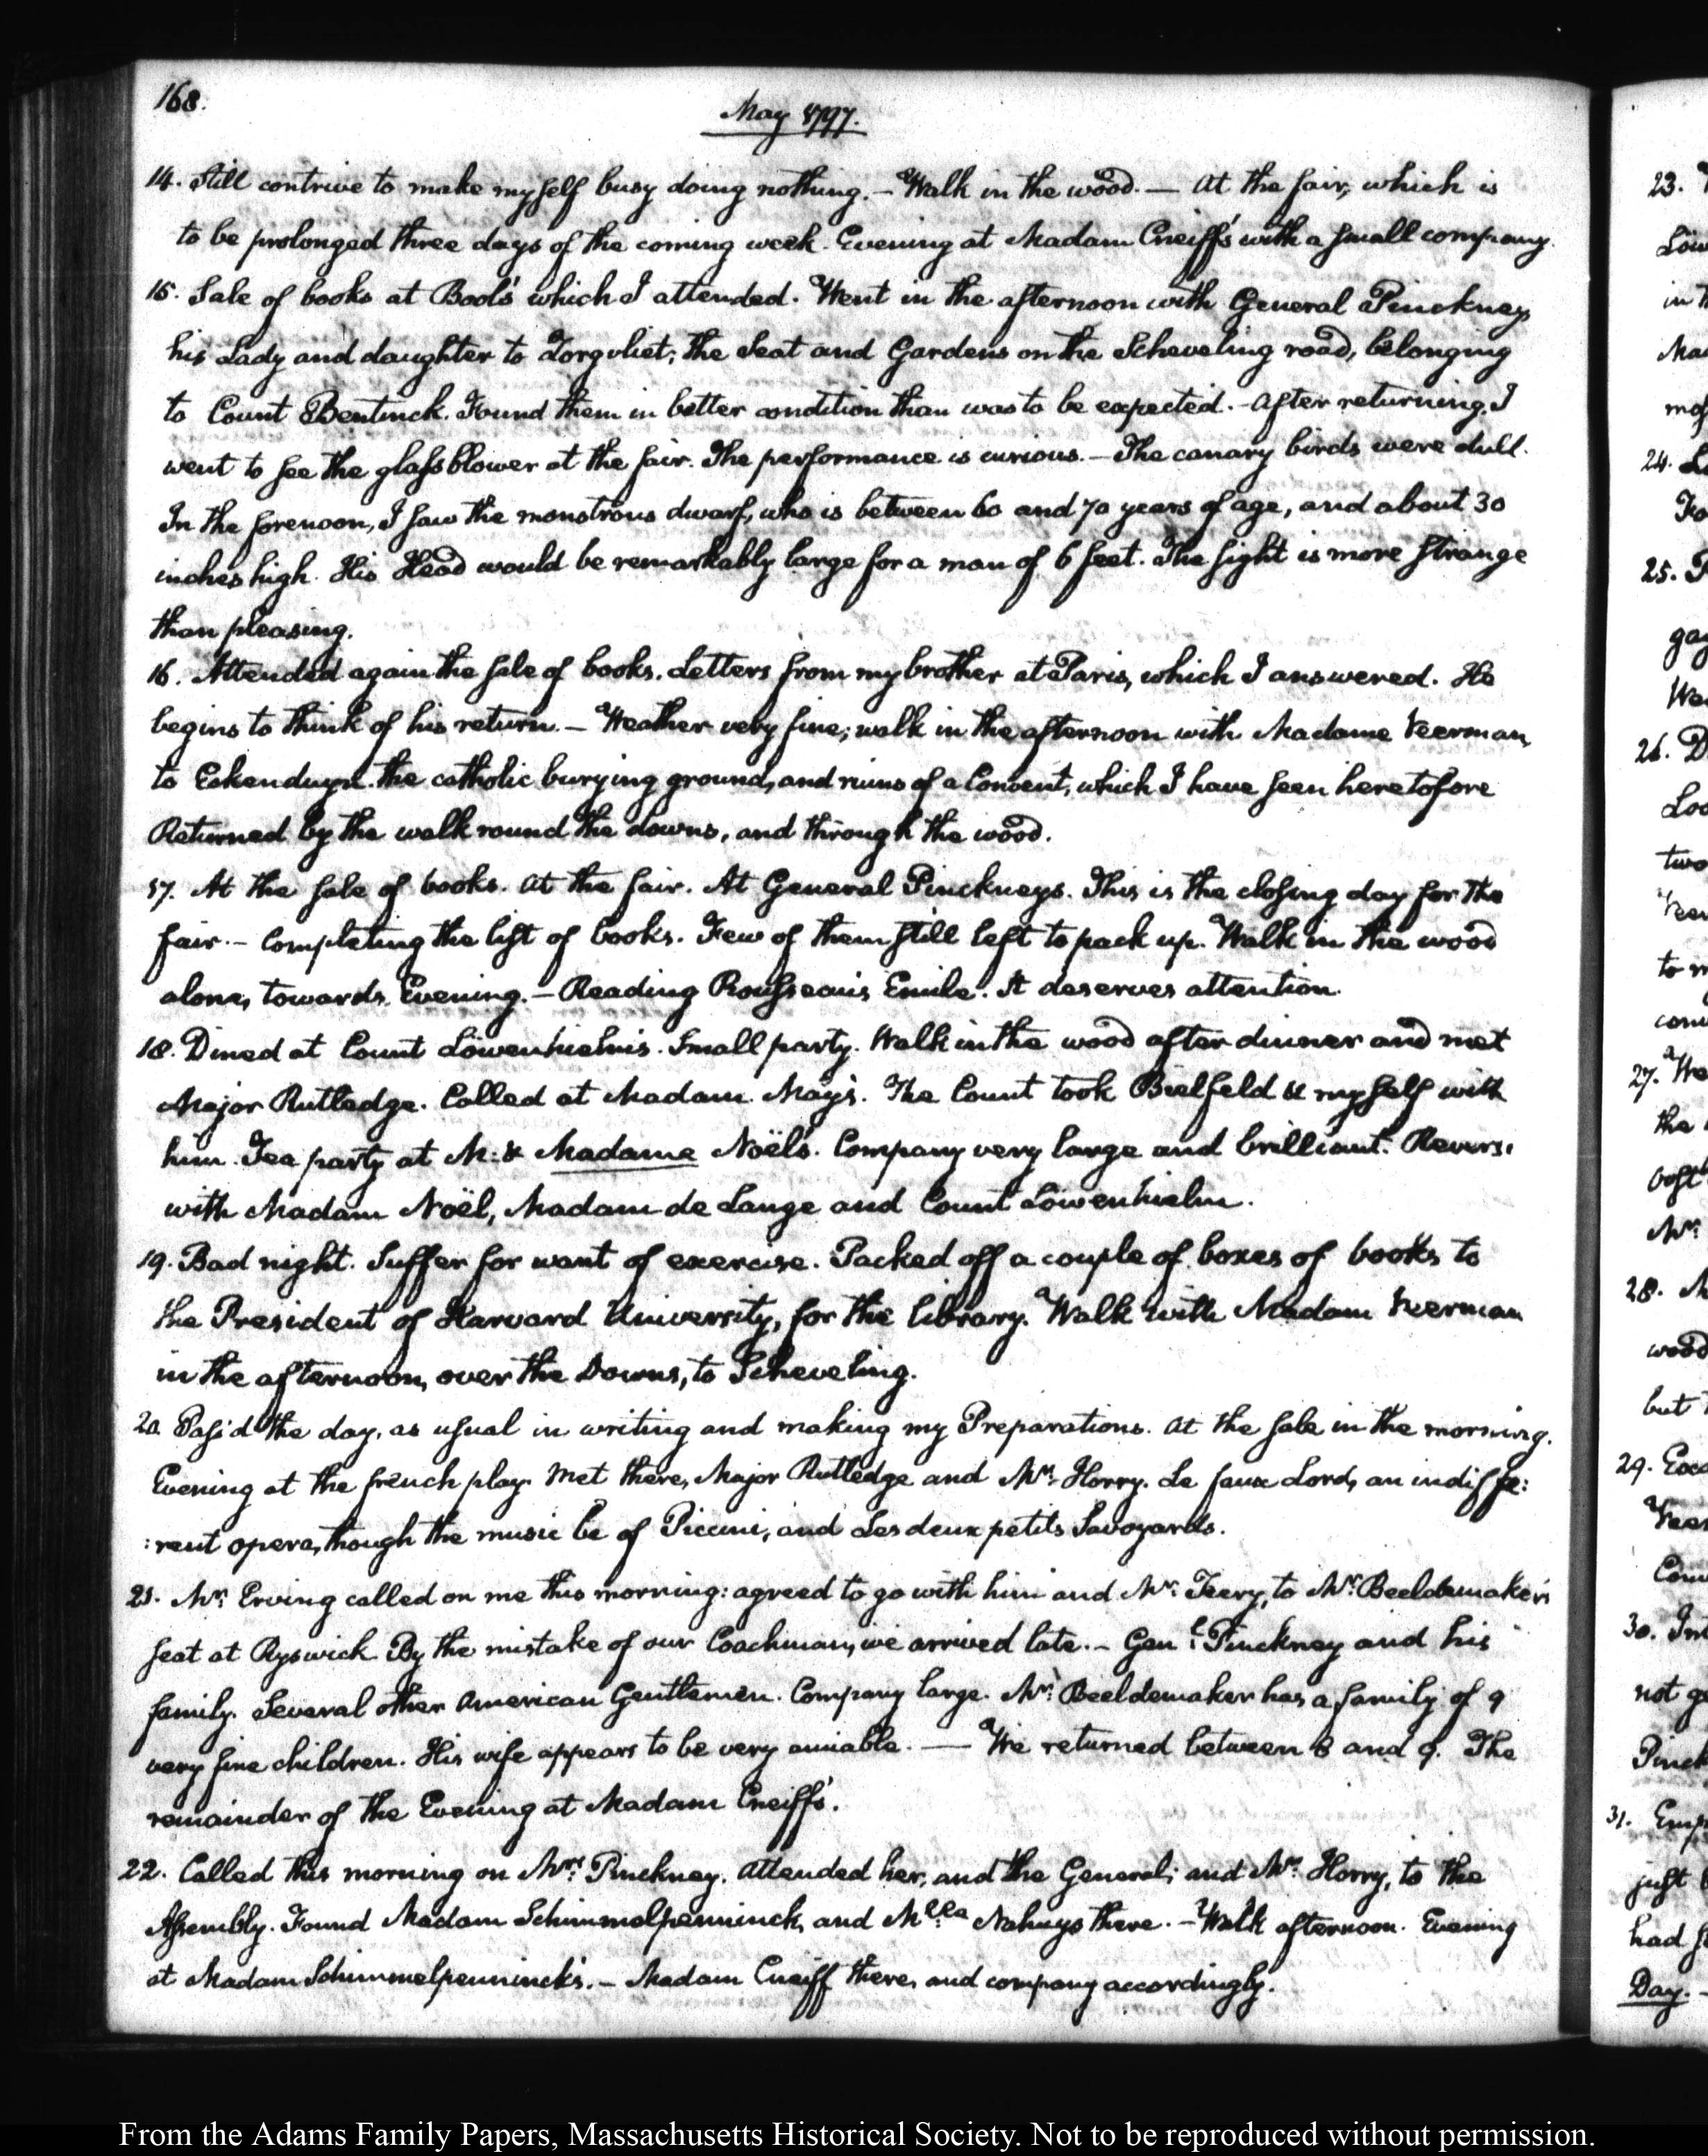 168.
May 1797.
14. Still contrive to make myself busy doing nothing. – Walk in the wood. — At the fair, which is
to be prolonged three days of the coming week. Evening at Madam Cneiff's with a small company.
15. Sale of books at Bool's which I attended. Went in the afternoon with General Pinckney,
his Lady and daughter to Zorgvliet; the Seat and Gardens on the Scheveling road, belonging
to Count Bentinck. Found them in better condition than was to be expected. – After returning, I
went to see the glassblower at the fair. The performance is curious. – The canary birds were dull.
In the forenoon, I saw the monstrous dwarf, who is between 60 and 70 years of age, and about 30
inches high. His Head would be remarkably large for a man of 6 feet. The sight is more strange
than pleasing.
16. Attended again the sale of books. Letters from my brother at Paris, which I answered. He
begins to think of his return. – Weather very fine; walk in the afternoon with Madame Veerman,
to Eikenduyn. the catholic burying ground, and ruins of a Convent, which I have seen heretofore
Returned by the walk round the downs, and through the wood.
17. At the sale of books. At the fair. At General Pinckneys. This is the closing day for the
fair. – Completing the list of books. Few of them still left to pack up. Walk in the wood
alone, towards Evening. – Reading Rousseau's Emile. It deserves attention.
18. Dined at Count Löwenhielm's. Small party. Walk in the wood after dinner and met
Major Rutledge. Called at Madam May's. The Count took Bielfeld & myself with
him. Tea party at M: & Madame Noël's. Company very large and brilliant. Reversi
with Madam Noël, Madam de Lange and Count Löwenhielm.
19. Bad night. Suffer for want of exercise. Packed off a couple of boxes of books to
the President of Harvard University, for the library. Walk with Madam Veerman
in the afternoon, over the Downs, to Scheveling.
20. Pass'd the day, as usual in writing and making my Preparations. At the sale in the morning.
Evening at the french play. Met there, Major Rutledge and Mr: Horry. Le faux Lord, an indiffe:
:rent opera, though the music be of Piccini, and Les deux petits Savoyards.
21. Mr: Erving called on me this morning: agreed to go with him and Mr: Teery, to Mr: Beeldemaker's
seat at Ryswick. By the mistake of our Coachman, we arrived late. – Genl: Pinckney and his
family. Several other American Gentlemen. Company large. Mr: Beeldemaker has a family of 9
very fine children. His wife appears to be very amiable. — We returned between 8 and 9. The
remainder of the Evening at Madam Cneiff's.
22. Called this morning on Mrs: Pinckney. Attended her, and the General, and Mr: Horry, to the
Assembly. Found Madam Schimmelpenninck, and Mlle Nahuys there. – Walk afternoon. Evening
at Madam Schimmelpenninck's. – Madam Cneiff there, and company accordingly.
From the Adams Family Papers, Massachusetts Historical Society. Not to be reproduced without permission.